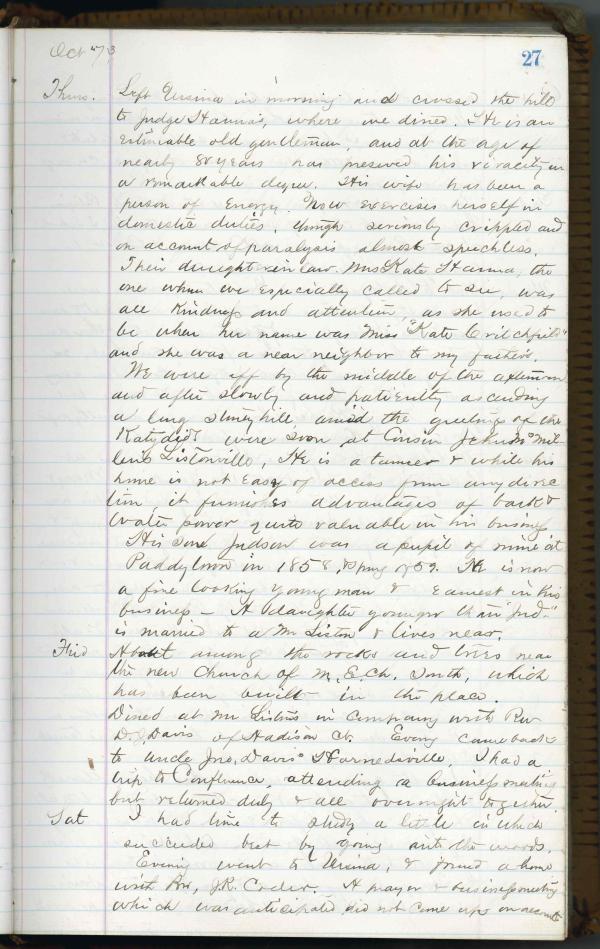 Oct 73
27
Thurs. Left Ursina in morning and crossed the hill
to Judge Hanna's, where we dined. He is an
estimable old gentleman, and at the age of
nearly 80 years has preserved his vivacity in
a remarkable degree. His wife has been a
person of Energy. Now exercises herself in
domestic duties, though seriously crippled and
on account of paralysis almost speechless.
Their daughter in law. Mrs Kate Hanna, the
one whom we especially called to see, was
all kindness and attention, as she used to
be when her name was Miss "Kate Critchfield"
and she was a near neighbor to my father's.
We were off by the middle of the afternoon
and after slowly and patiently ascending
a long stoney hill, amid the greetings of the
Katydids were soon at Cousin John McMil-
len's Listonville, He is a tanner & while his
home is not Easy of access from any direc
tion it furnishes advantages of bark &
Water power quite valuable in his business
His son Judson was a pupil of mine at
Paddytown in 1858, & spring of 59. He is now
a fine looking young man & earnest in his
business – A daughter younger than "Jud"
is married to a Mr Liston & lives near.
Frid About among the rocks and trees near
the new Church of M. E. Ch. South, which
has been built in the place.
Dined at Mr Liston's in Company with Rev
D. Davis of Hadison Ct. Evening came back
to Uncle Jno. Davis' Harnedsville. I had a
trip to Confluence, attending a business meeting
but returned duly & all overnight together.
Sat I had time to study a little in which
succeeded but by going into the woods.
Evening went to Ursina, & found a home
with Bro, J.R. Coder. A prayer & business meeting
which was anticipated did not come up on account